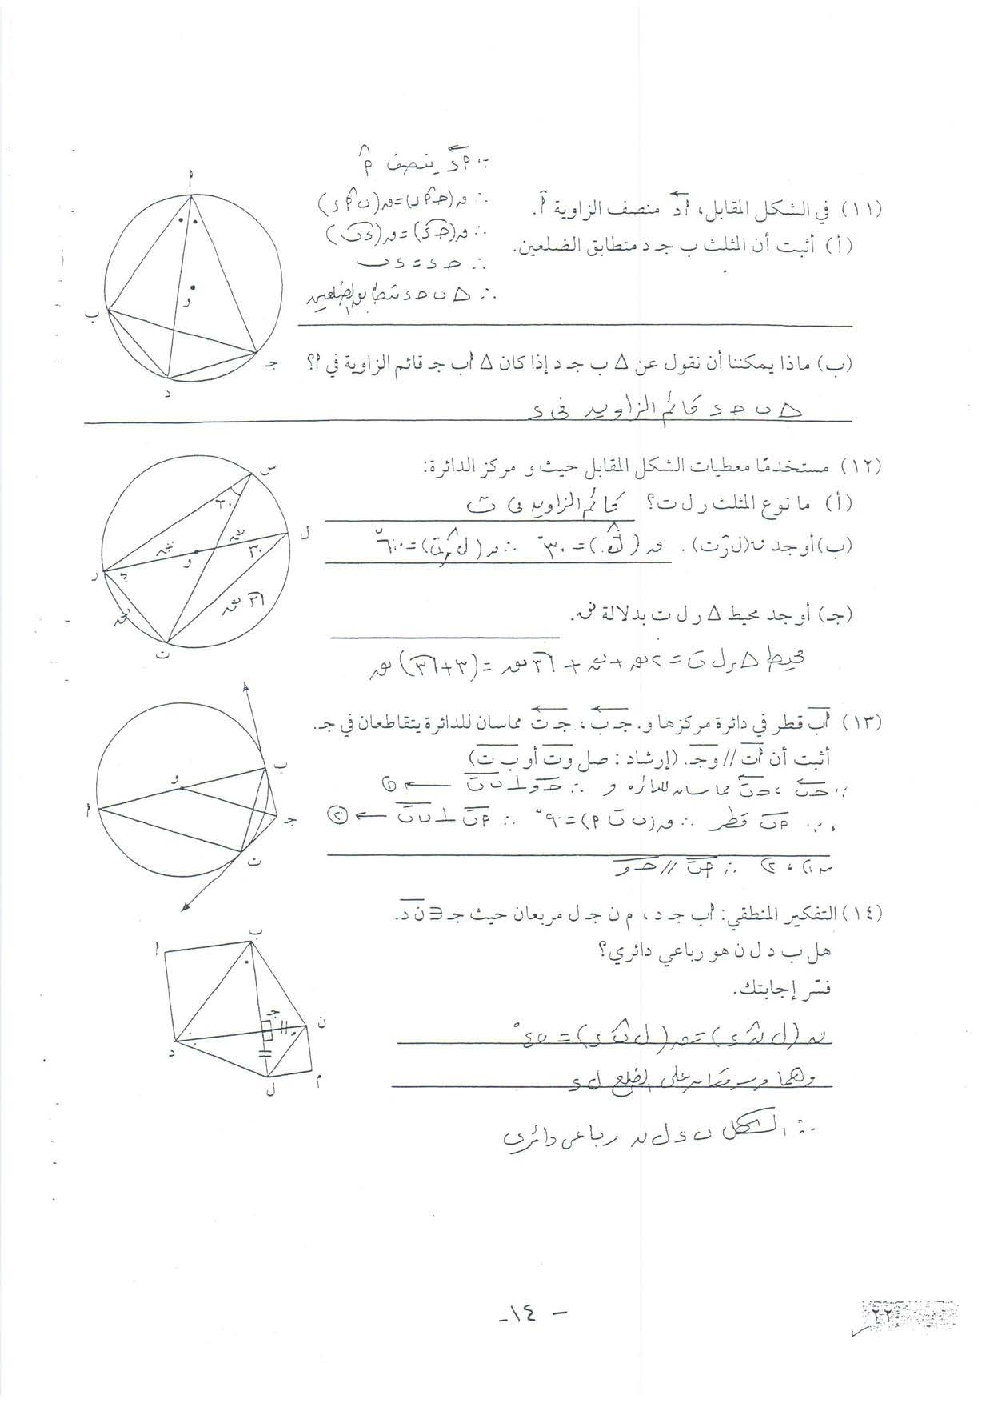 ∵ أد ينصف أ
(١١) في الشكل المقابل، أد منصف الزاوية أ.
∴ ق(جأد)=ق(بأد)
(أ) أثبت أن المثلث ب جـ د متطابق الضلعين.
∴ ق(جد)=ق(دب)
∴ جـ د = د ب
∴ △ ب جـ د متطابق الضلعين
(ب) ماذا يمكننا أن نقول عن △ ب جـ د إذا كان △ أب جـ قائم الزاوية في أ؟
△ ب جـ د قائم الزاوية في د
(١٢) مستخدمًا معطيات الشكل المقابل حيث و مركز الدائرة:
(أ) ما نوع المثلث ر ل ت؟ قائم الزاوية في ت
(ب) أوجد ق(ل ر ت). ق(ل) = ٣٠° ∴ ق(ل ر ت) = ٦٠°
(جـ) أوجد محيط △ ر ل ت بدلالة نق.
محيط △ ر ل ت = ٢نق + نق + √٣ نق = (٣+√٣) نق
(١٣) أب قطر في دائرة مركزها و. جـ ب، جـ ت مماسان للدائرة يتقاطعان في جـ.
أثبت أن أت // وجـ. (إرشاد: صل وت أو ب ت)
∵ جـ ب، جـ ت مماسان للدائرة و ∴ جـ و ⊥ ب ت ← ①
∵ أب قطر ∴ ق(ب ت أ) = ٩٠° ∴ أت ⊥ ب ت ← ②
من ١، ٢ ∴ أت // جـ و
(١٤) التفكير المنطقي: أب جـ د، م ن جـ ل مربعان حيث جـ ∈ ن د.
هل ب د ل ن هو رباعي دائري؟
فسّر إجابتك.
ق(ل ن د) = ق(ل ب د) = ٤٥°
وهما مرسومتان على الضلع ل د
∴ الشكل ب د ل ن رباعي دائري
أ
و
ب
جـ
د
س
٣٠
ل
نق
٣٠
نق
و
ر
نق
√٣ نق
ت
ب
و
أ
جـ
ت
ب
أ
جـ
ن
د
م
ل
- ١٤ -